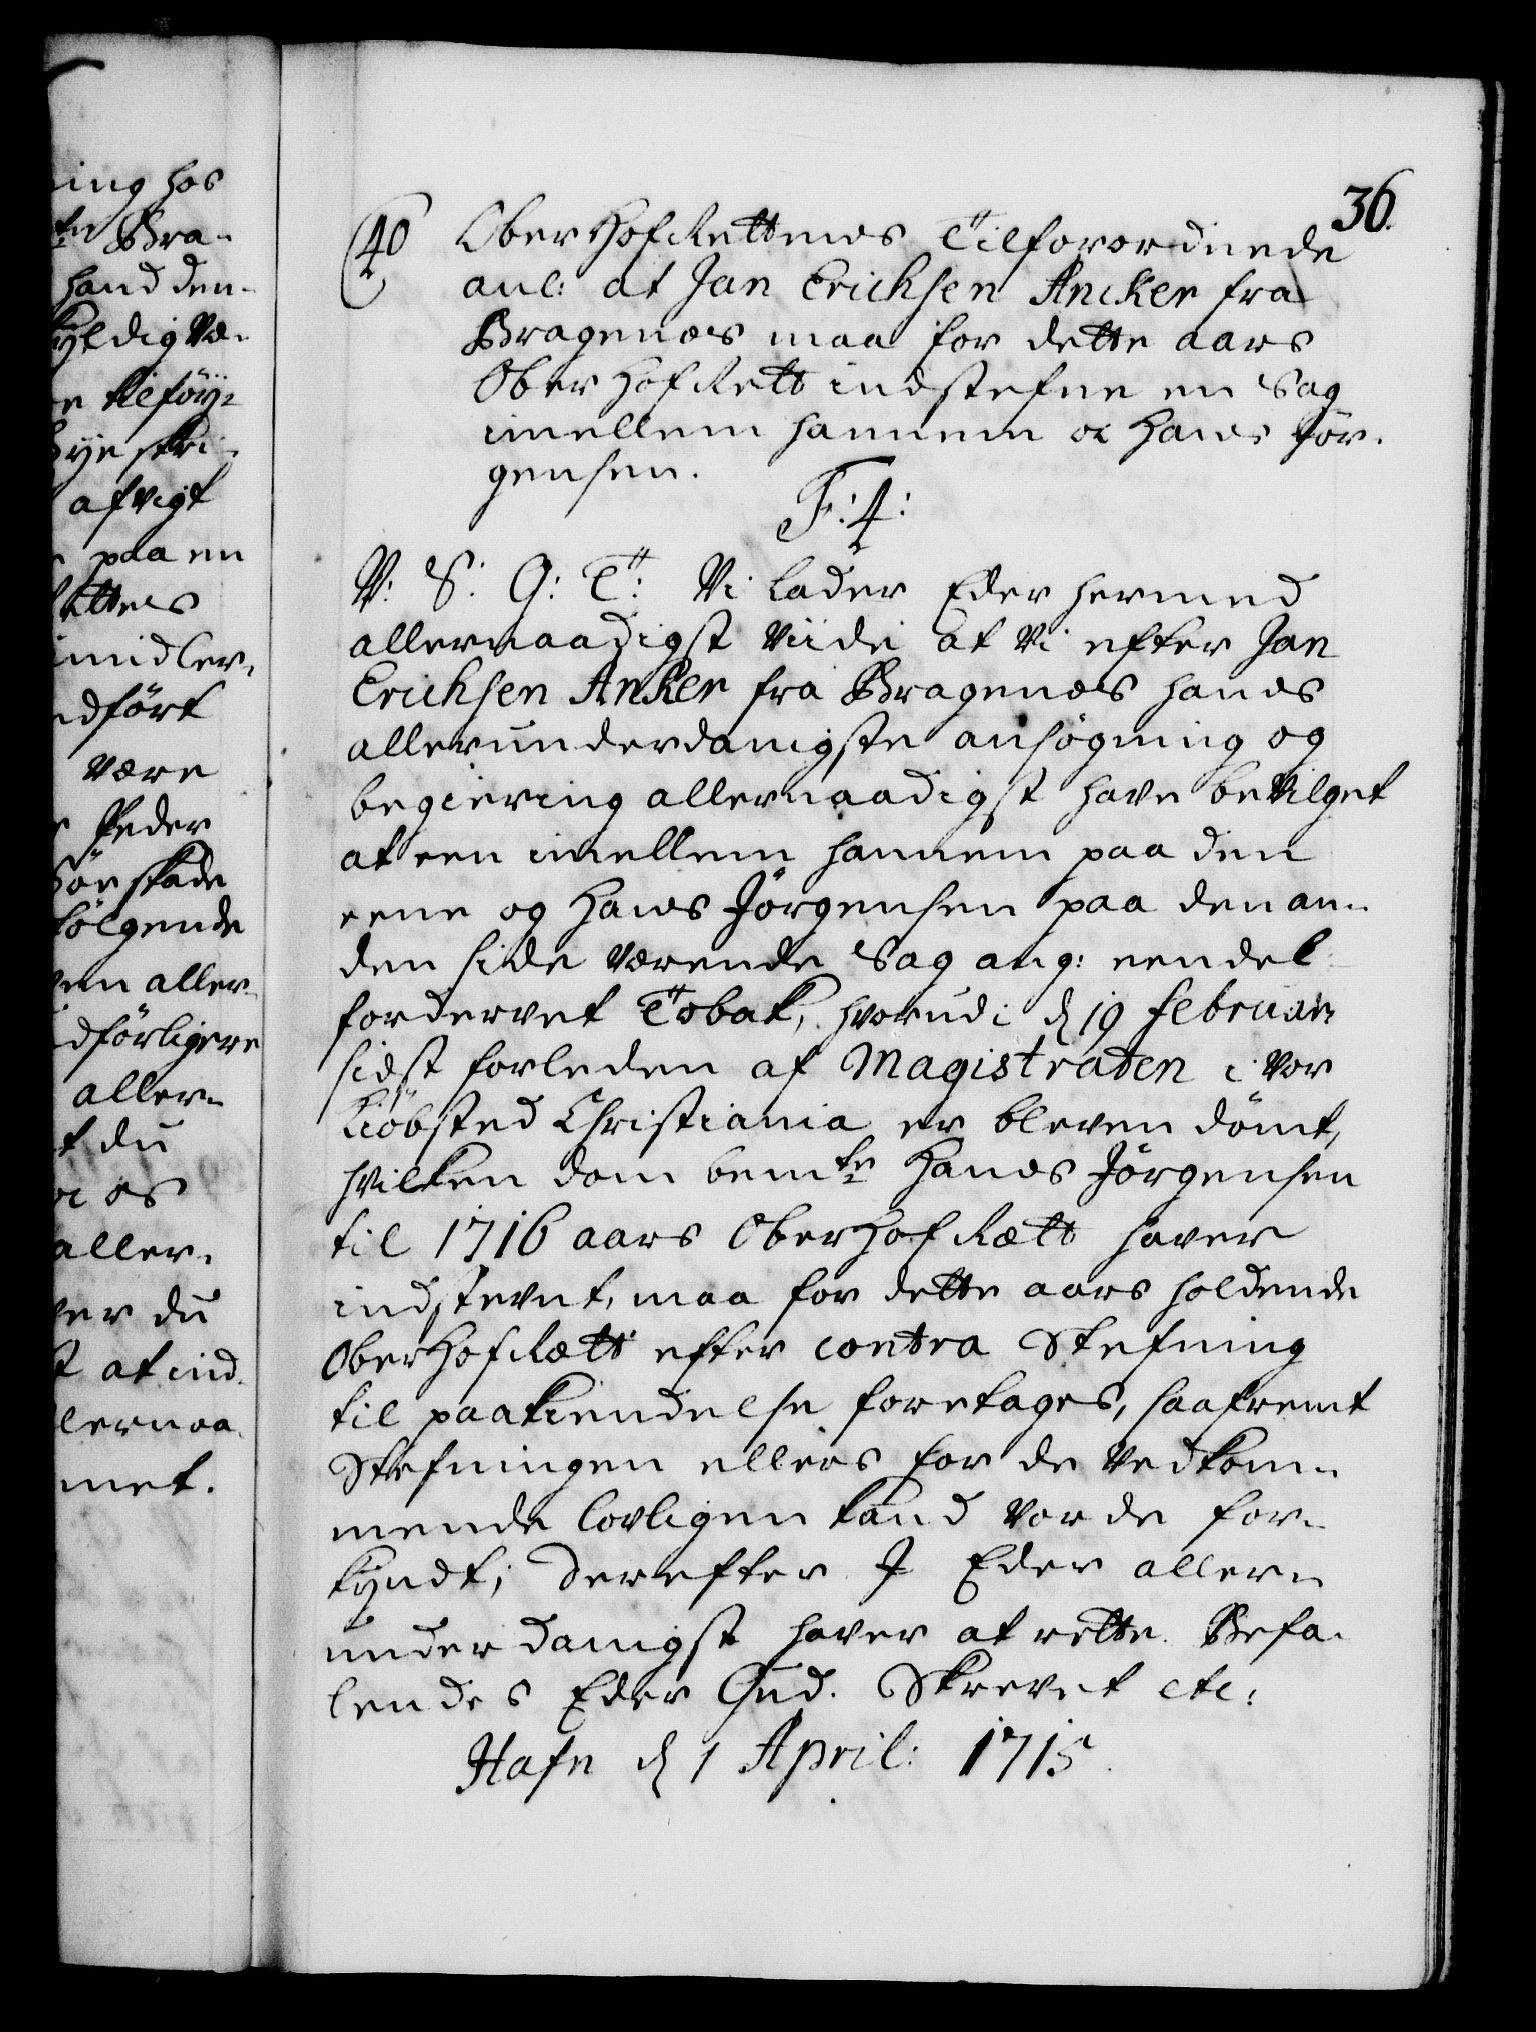 ing hos
te Bra-
hand den-
kyldig Væ-
e tilföy-
bye skri-
afvigt
paa en
Rettes
imidler-
ndfört
være
Peder
Bör skade
fölgende
en aller-
dförligere
aller-
t du
oc os
aller-
ver du
t at ind-
lernaa-
met.
36.
40 OberHofRettens Tilforordnede
anl: at Jan Erichsen Ancker fra
Bragenæs maa for dette aars
OberHofRett indstefne en Sag
imellem hannem oc Hans Jör-
gensen.
F: 4:
V: S: G: T: Vi lader Eder hermed
allernaadigst viide at Vi efter Jan
Erichsen Anker fra Bragenæs hans
allerunderdanigste ansögning og
begiering allernaadigst have bevilget
at een imellem hannem paa den
eene og Hans Jörgensen paa den an-
den side værende Sag ang: eendel
fordervet Tobak, hvorudi d 19 Februar
sidst forleden af Magistraten i vor
Kiöbsted Christiania er bleven dömt,
hvilken dom bemte Hans Jörgensen
til 1716 aars OberHofRætt haver
indstevnt, maa for dette aars holdende
OberHofRætt efter contra Stefning
til paakiendelse foretages, saafremt
Stefningen ellers for de vedkom-
mende lovligen kand vorde for-
kyndt; Derefter I Eder aller-
underdanigst haver at rette. Befa-
lendes Eder Gud. Skrevet etc:
Hafn d 1 April: 1715.